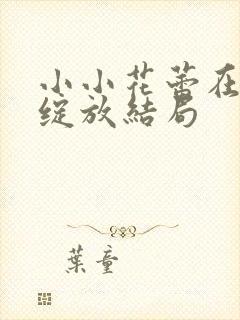 小小花蕾在
绽放结局
葉童